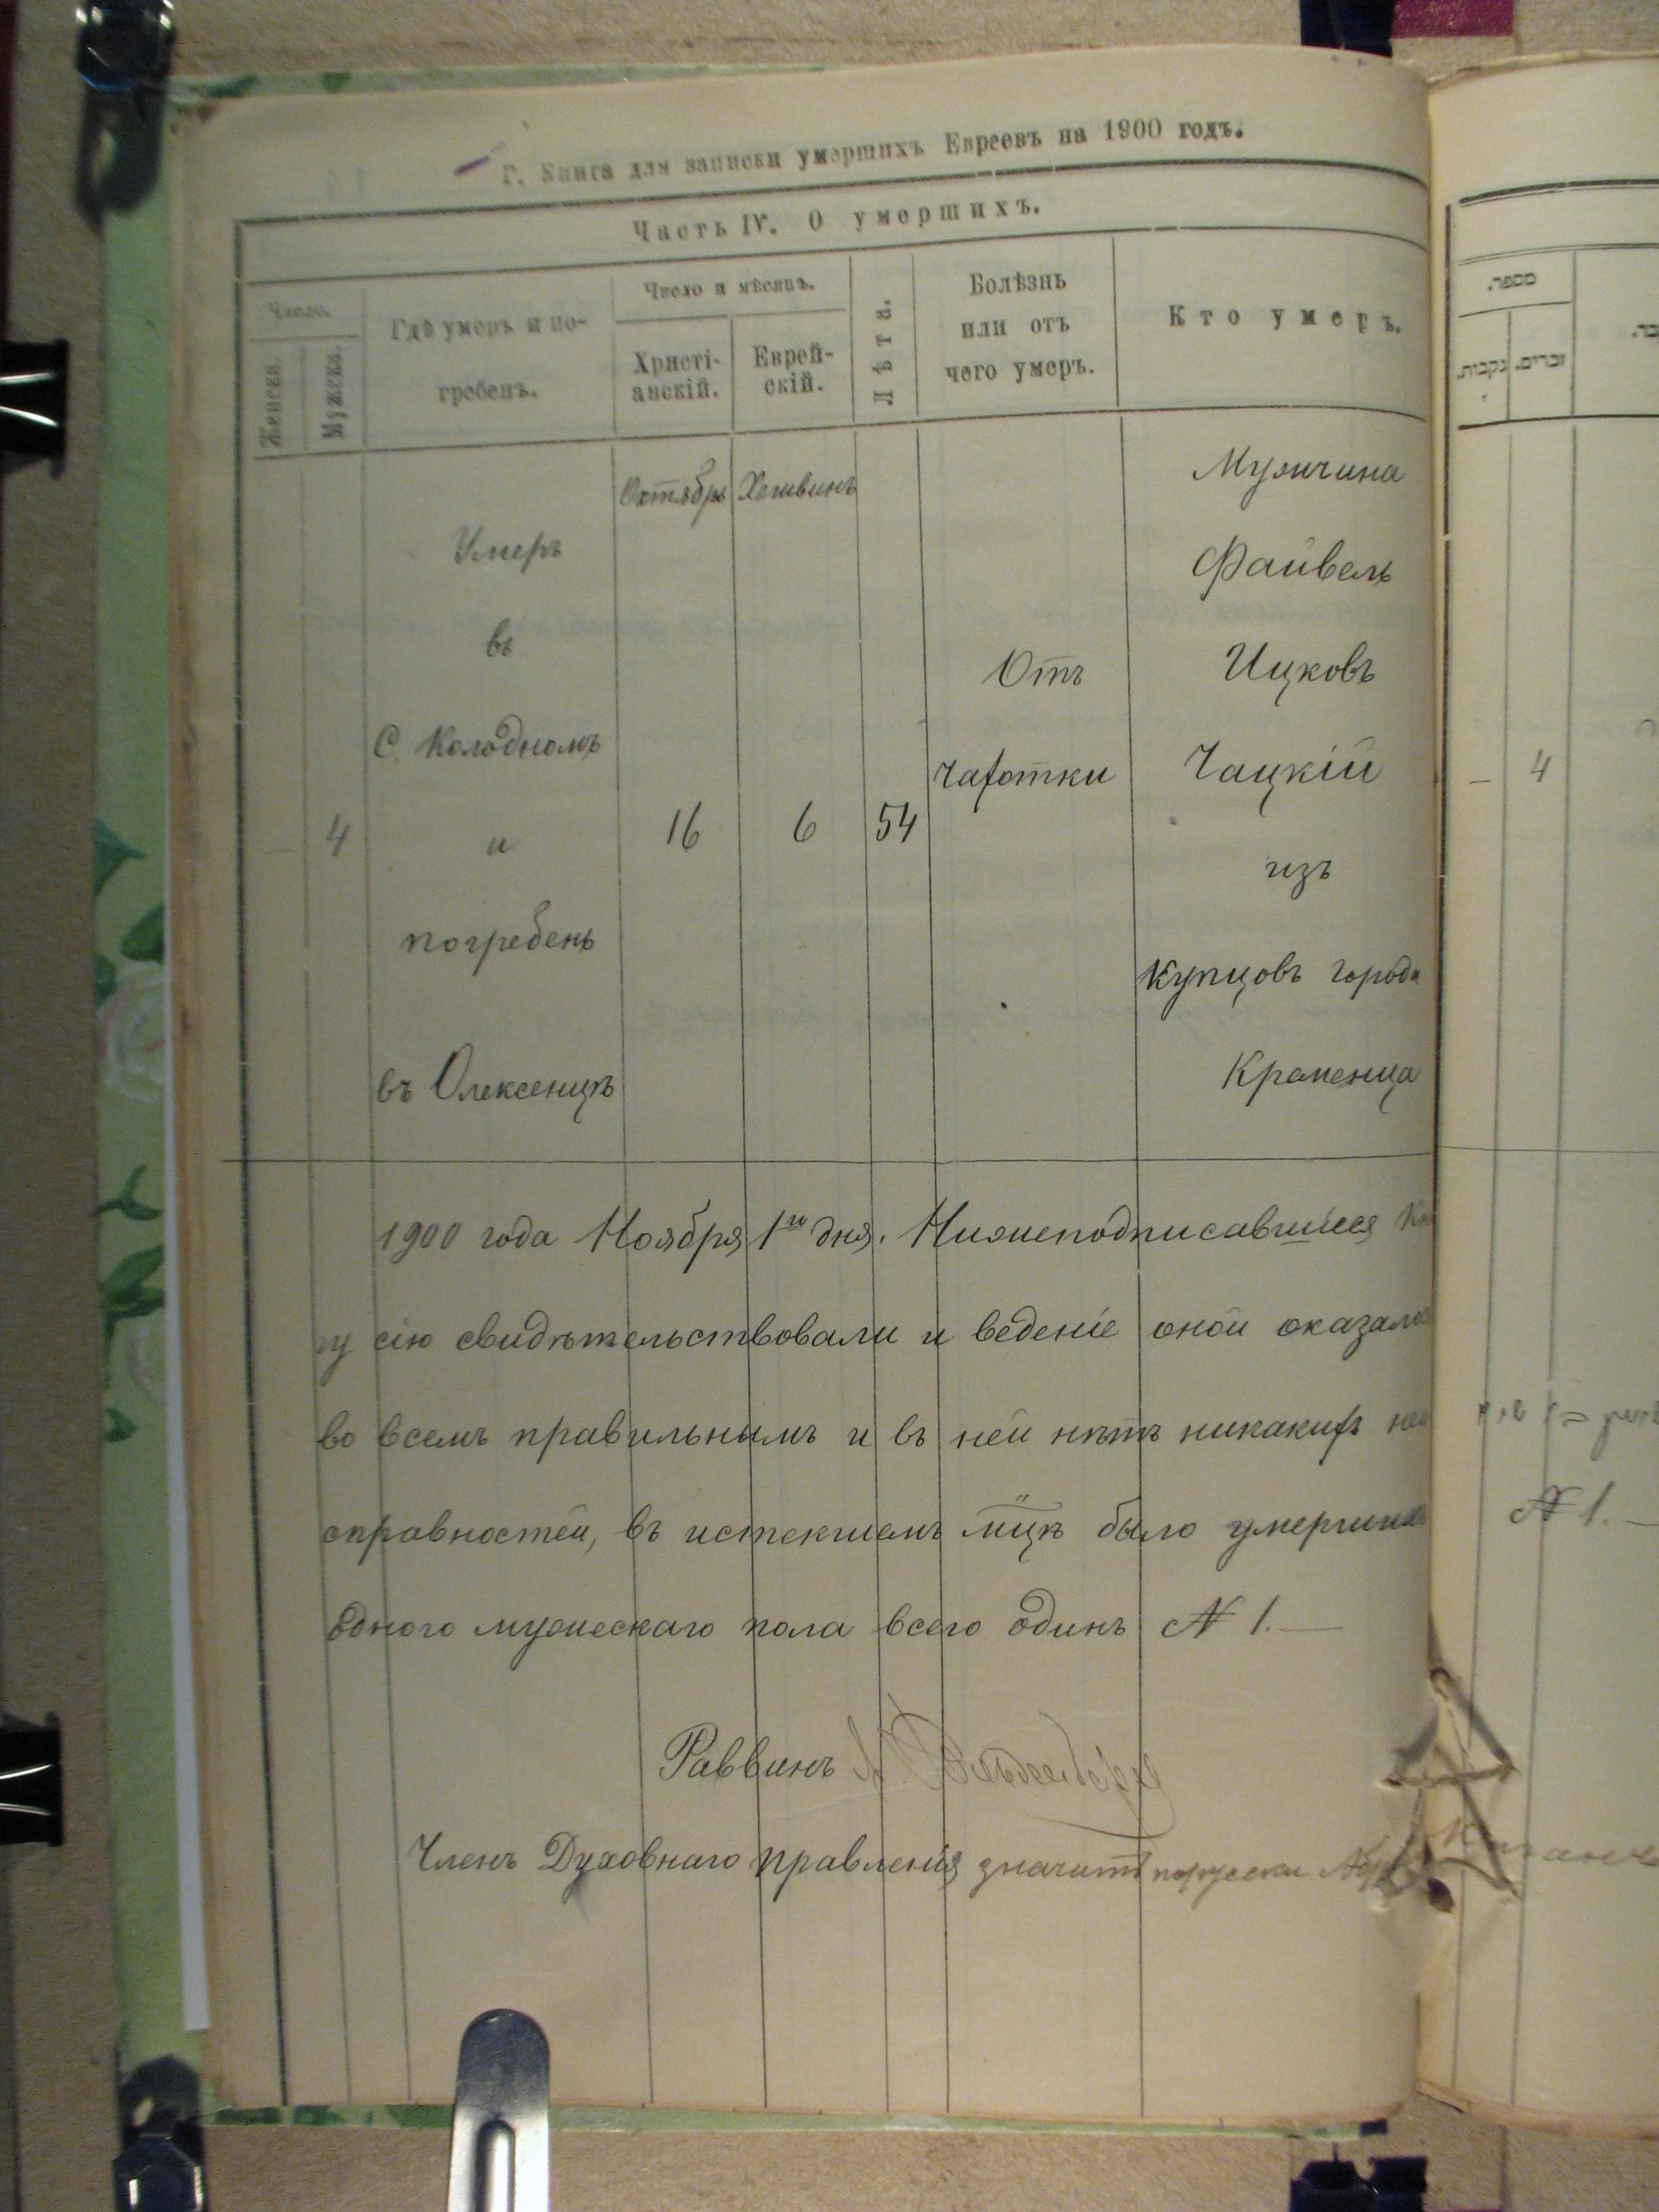 Г. Книга для записки умершихъ Евреевъ на 1900 годъ.
Часть IV. О умершихъ.
Число.
Женска.
Мужска.
Гдѣ умеръ и по-
гребенъ.
Число и мѣсяцъ.
Христі-
анскій.
Еврей-
скій.
Лѣта.
Болѣзнь
или отъ
чего умеръ.
Кто умеръ.
מספר.
זכרים.
נקבות.
Октябрь Хешвинъ
Умеръ
въ
С. Колодномъ
и
погребенъ
въ Олексенцѣ
4
16
6
54
Отъ
чахотки
Мужчина
Файвель
Ицковъ
Чацкій
изъ
Купцовъ города
Кременца
4
1900 года Ноября 1го дня. Нижеподписавшіеся Кни
гу сію свидѣтельствовали и веденіе оной оказалось
во всемъ правильнымъ и въ ней нѣтъ никакихъ неи
справностей, въ истекшемъ мцѣ было умершихъ
одного мужескаго пола всего одинъ № 1.—
№ 1.—
Раввинъ
Членъ Духовнаго правленія значитъ порусски